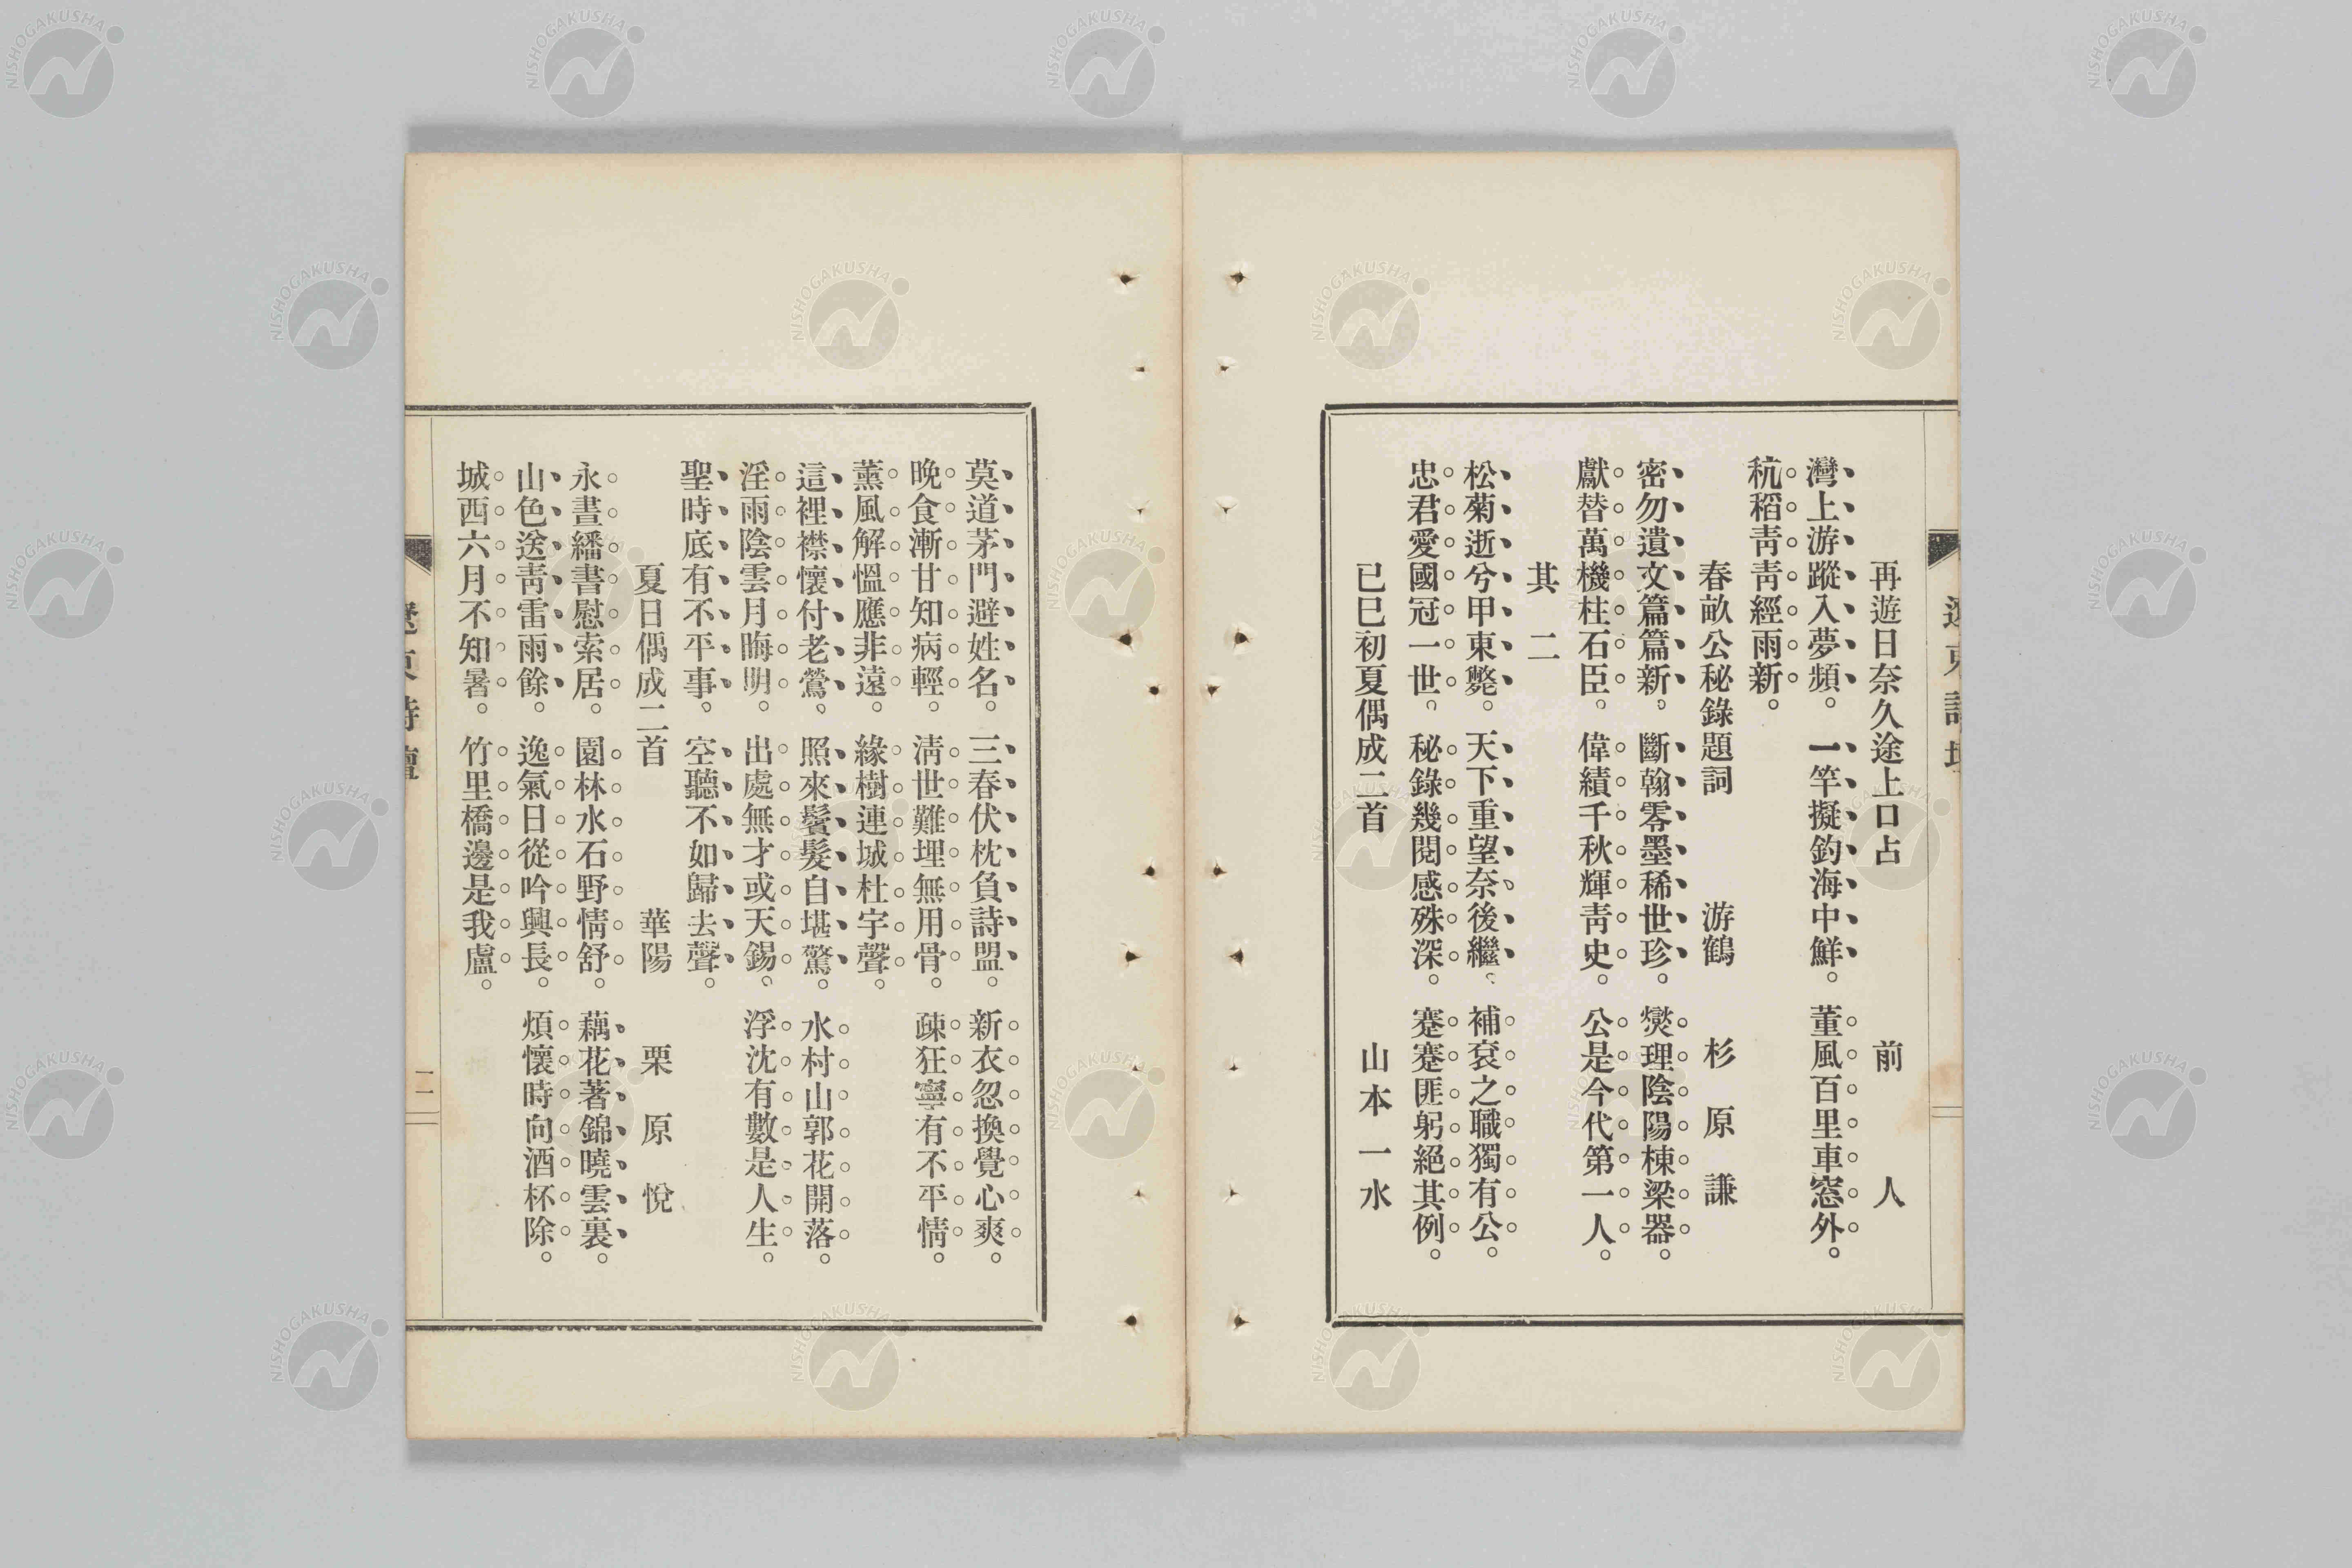 再遊日奈久途上口占　前人
灣上游蹤入夢頻。一竿擬釣海中鮮。董風百里車窓外。
秔稻靑靑經雨新。
春畝公秘錄題詞　游鶴　杉原謙
密勿遺文篇篇新。斷翰零墨稀世珍。爕理陰陽棟梁器。
獻替萬機柱石臣。偉績千秋輝靑史。公是今代第一人。
其二
松菊逝兮甲東斃。天下重望奈後繼。補袞之職獨有公。
忠君愛國冠一世。秘錄幾閱感殊深。蹇蹇匪躬絕其例。
已巳初夏偶成二首　山本一水
莫道茅門避姓名。三春伏枕負詩盟。新衣忽換覺心爽。
晚食漸甘知病輕。淸世難埋無用骨。疎狂寧有不平情。
薰風解慍應非遠。緣樹連城杜宇聲。
這裡襟懷付老鶯、照來鬢髮自堪驚。水村山郭花開落。
淫雨陰雲月晦明。出處無才或天錫。浮沈有數是人生。
聖時底有不平事。空聽不如歸去聲。
夏日偶成二首　華陽　栗原悅
永晝繙書慰索居。園林水石野情舒。藕花著錦曉雲裏。
山色送靑雷雨餘。逸氣日從吟興長。煩懷時向酒杯除。
城西六月不知暑。竹里橋邊是我廬。
二
NISHOGAKUSHA